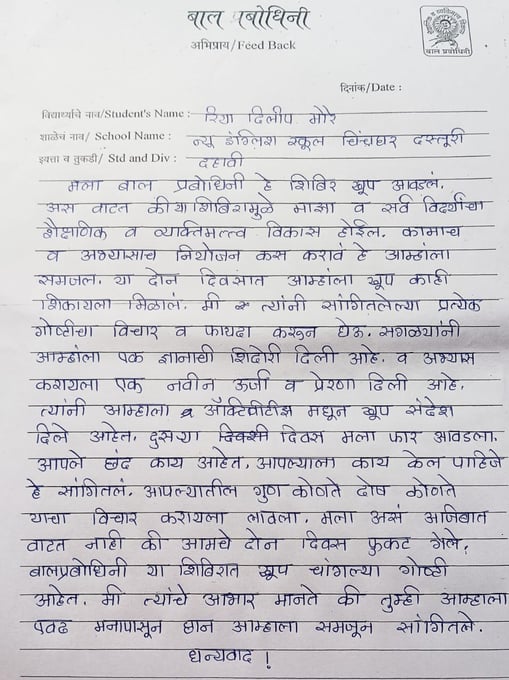 बाल प्रबोधिनी
अभिप्राय/Feed Back
बाल प्रबोधिनी
दिनांक/Date :
विद्यार्थ्याचे नाव/Student's Name : रिया दिलीप मोरे
शाळेचं नाव/ School Name : न्यू इंग्लिश स्कूल चिंचघर दस्तूरी
इयत्ता व तुकडी/ Std and Div : दहावी
मला बाल प्रबोधिनी हे शिबिर खूप आवडलं.
अस वाटत की या शिबिरामुळे माझा व सर्व विदर्थ्याचा
शैक्षणिक व व्यक्तिमत्त्व विकास होईल. कामाच
व अभ्यासाच नियोजन कस करावं हे आम्हांला
समजल. या दोन दिवसात आम्हांला खूप काही
शिकायला मिळालं. मी त्यांनी सांगितलेल्या प्रत्येक
गोष्टीचा विचार व फायदा करून घेऊ. सगळ्यांनी
आम्हांला एक ज्ञानाची शिदोरी दिली आहे. व अभ्यास
करायला एक नवीन ऊर्जा व प्रेरणा दिली आहे.
त्यांनी आम्हाला ॲक्टिवीटीझ मधून खूप संदेश
दिले आहेत. दुसऱ्या दिवस मला फार आवडला.
आपले छंद काय आहेत. आपल्याला काय केल पाहिजे
हे सांगितलं. आपल्यातील गुण कोणते दोष कोणते
याचा विचार करायला लावला. मला असं अजिबात
वाटत नाही की आमचे दोन दिवस फुकट गेले.
बालप्रबोधिनी या शिबिरात खूप चांगल्या गोष्टी
आहेत. मी त्यांचे आभार मानते की तुम्ही आम्हाला
एवढ मनापासून छान आम्हाला समजून सांगितले.
धन्यवाद !